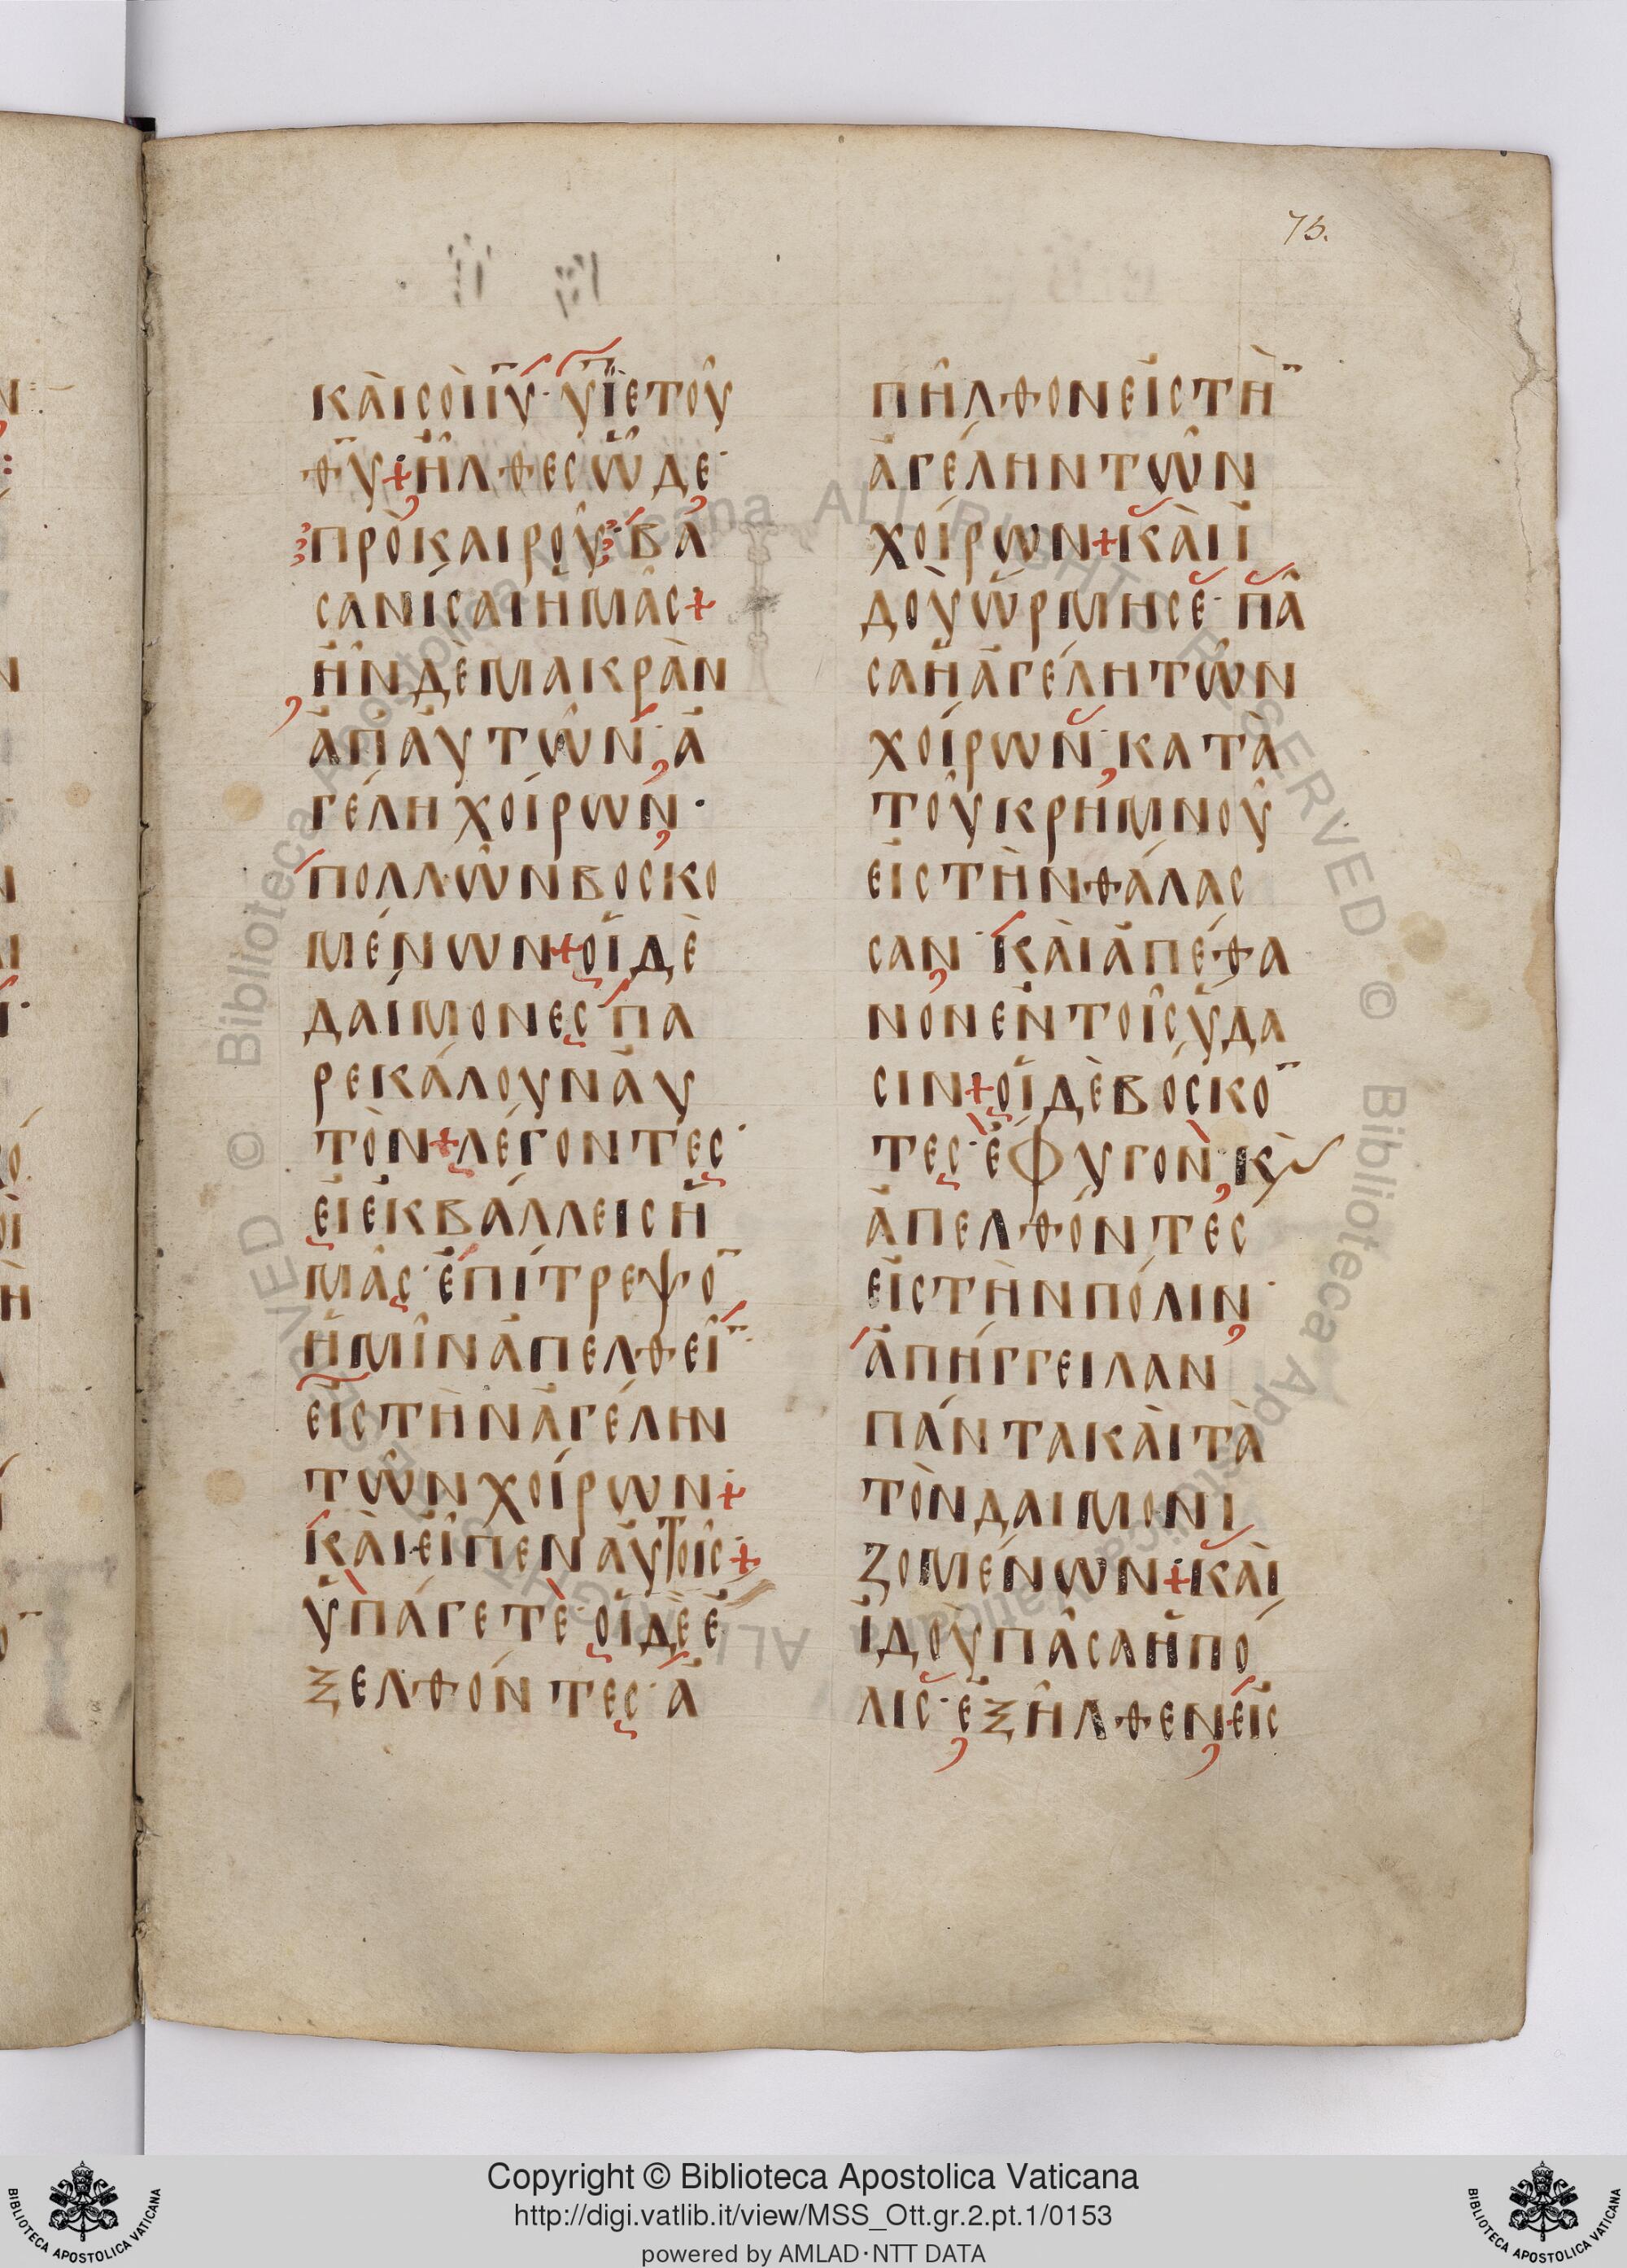 76.
ΚΑῚ ΣΟῚ ΙΥ͂· ΥἹῈ ΤΟΥ͂
ΘΥ͂ + ἮΛΘΕΣ ὯΔΕ·
ΠΡῸ ΚΑΙΡΟΥ͂· ΒΑ
ΣΑΝΊΣΑΙ ἩΜΑ͂Σ +
ἮΝ ΔΕ ΜΑΚΡᾺΝ
ἈΠ ΑΥ̓ΤΩ͂Ν· Ἀ
ΓΈΛΗ ΧΟΊΡΩΝ·
ΠΟΛΛΩ͂Ν ΒΟΣΚΟ
ΜΈΝΩΝ + ΟἹ ΔῈ
ΔΑΊΜΟΝΕΣ ΠΑ
ΡΕΚΆΛΟΥΝ ΑΥ̓
ΤῸΝ + ΛΈΓΟΝΤΕΣ·
ΕἸ ἘΚΒΆΛΛΕΙΣ Ἡ
ΜΑ͂Σ· ἘΠΊΤΡΕΨΟ¯
ἩΜΙ͂Ν ἈΠΕΛΘΕΙ͂¯
ΕἸΣ ΤῊΝ ἈΓΈΛΗΝ
ΤΩ͂Ν ΧΟΊΡΩΝ +
ΚΑῚ ΕἾΠΕΝ ΑΥ̓ΤΟΙ͂Σ· +
ὙΠΆΓΕΤΕ· ΟἹ ΔῈ Ἐ
ΞΕΛΘΌΝΤΕΣ· Ἀ
ΠΗ͂ΛΘΟΝ ΕἸΣ ΤῊ¯
ἈΓΈΛΗΝ ΤΩ͂Ν
ΧΟΊΡΩΝ + ΚΑῚ Ἰ
ΔΟῪ ὭΡΜΗΣΕ· ΠΑ͂
ΣΑ Ἡ ἈΓΈΛΗ ΤΩ͂Ν
ΧΟΊΡΩΝ· ΚΑΤᾺ
ΤΟΥ͂ ΚΡΗΜΝΟΥ͂
ΕἸΣ ΤῊΝ ΘΆΛΑΣ
ΣΑΝ· ΚΑῚ ἈΠΈΘΑ
ΝΟΝ ἘΝ ΤΟΙ͂Σ ὝΔΑ
ΣΙΝ + ΟἹ ΔῈ ΒΌΣΚΟ¯
ΤΕΣ· ἜΦΥΓΟΝ· Κ̀
ἈΠΕΛΘΌΝΤΕΣ
ΕἸΣ ΤῊΝ ΠΌΛΙΝ·
ἈΠΉΓΓΕΙΛΑΝ
ΠΆΝΤΑ ΚΑῚ ΤᾺ
ΤῸΝ ΔΑΙΜΟΝΙ
ΖΟΜΈΝΩΝ + ΚΑῚ
ἸΔΟῪ ΠΑ͂ΣΑ Ἡ ΠΌ
ΛΙΣ· ἘΞΗ͂ΛΘΕΝ ΕἸΣ
Copyright © Biblioteca Apostolica Vaticana
http://digi.vatlib.it/view/MSS_Ott.gr.2.pt.1/0153
powered by AMLAD·NTT DATA
BIBLIOTECA APOSTOLICA VATICANA
BIBLIOTECA APOSTOLICA VATICANA